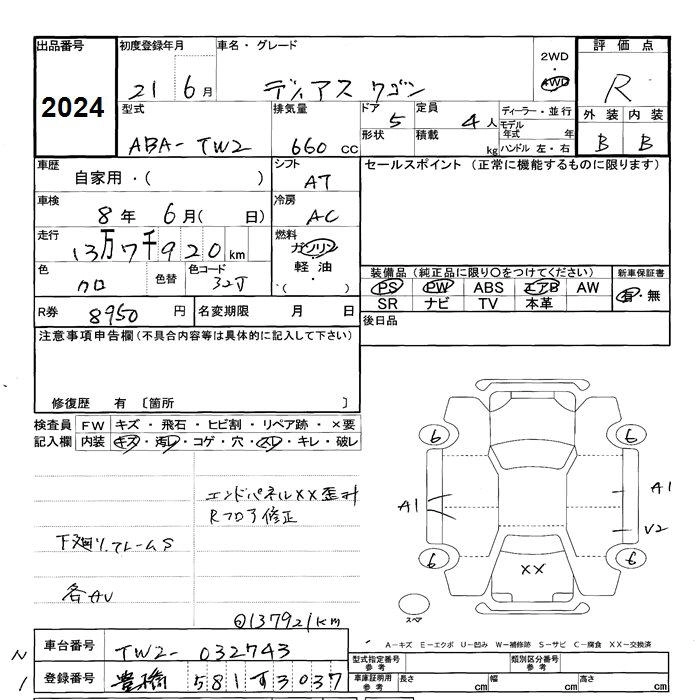 出品番号
2024
初度登録年月
21 6月
車名・グレード
ディアス ワゴン
2WD
・
4WD
評価点
R
外装 内装
B B
型式
ABA-TW2
排気量
660 cc
ドア
5
定員
4人
ディーラー・並行
形状
積載
kg
モデル年式 年
ハンドル 左・右
車歴
自家用・( )
シフト
AT
セールスポイント (正常に機能するものに限ります)
車検
8年 6月( 日)
冷房
AC
走行
13万7千920km
燃料
ガソリン
軽油
・( )
色
クロ
色替
色コード
32J
装備品(純正品に限り○をつけてください)
PS PW ABS エアB AW
SR ナビ TV 本革
新車保証書
有・無
R券 8950円
名変期限 月 日
後日品
注意事項申告欄(不具合内容等は具体的に記入して下さい)
修復歴 有 〔箇所 〕
検査員記入欄
FW キズ・飛石・ヒビ割・リペア跡・×要
内装 キズ・汚レ・コゲ・穴・スレ・キレ・破レ
エンドパネルXX歪み
Rフロア修正
下廻り、フレームS
各AU
137921km
6 6
A1 A1
V2
6 6
XX
スペア
A-キズ E-エクボ U-凹み W-補修跡 S-サビ C-腐食 XX-交換済
N
車台番号 TW2-032743
1
登録番号 豊橋 581 す 3037
型式指定番号 参考
類別区分番号 参考
車庫証明用 参考
長さ cm
幅 cm
高さ cm